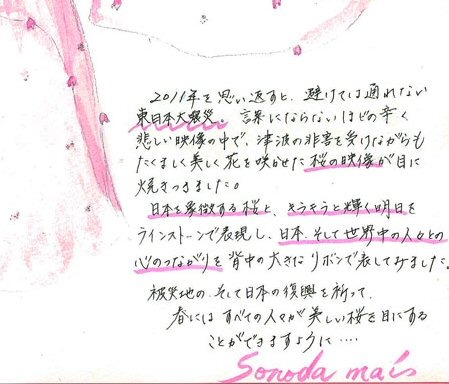 2011年を思い返すと、避けては通れない
東日本大震災。言葉にならないほどの辛く
悲しい映像の中で、津波の非害を受けながらも
たくましく美しく花を咲かせた桜の映像が目に
焼きつきました。
日本を象徴する桜と、キラキラと輝く明日を
ラインストーンで表現し、日本、そして世界中の人々との
心のつながりを背中の大きなリボンで表してみました。
被災地の、そして日本の復興を祈って、
春にはすべての人々が美しい桜を目にする
ことができますように‥‥
Sonoda mais